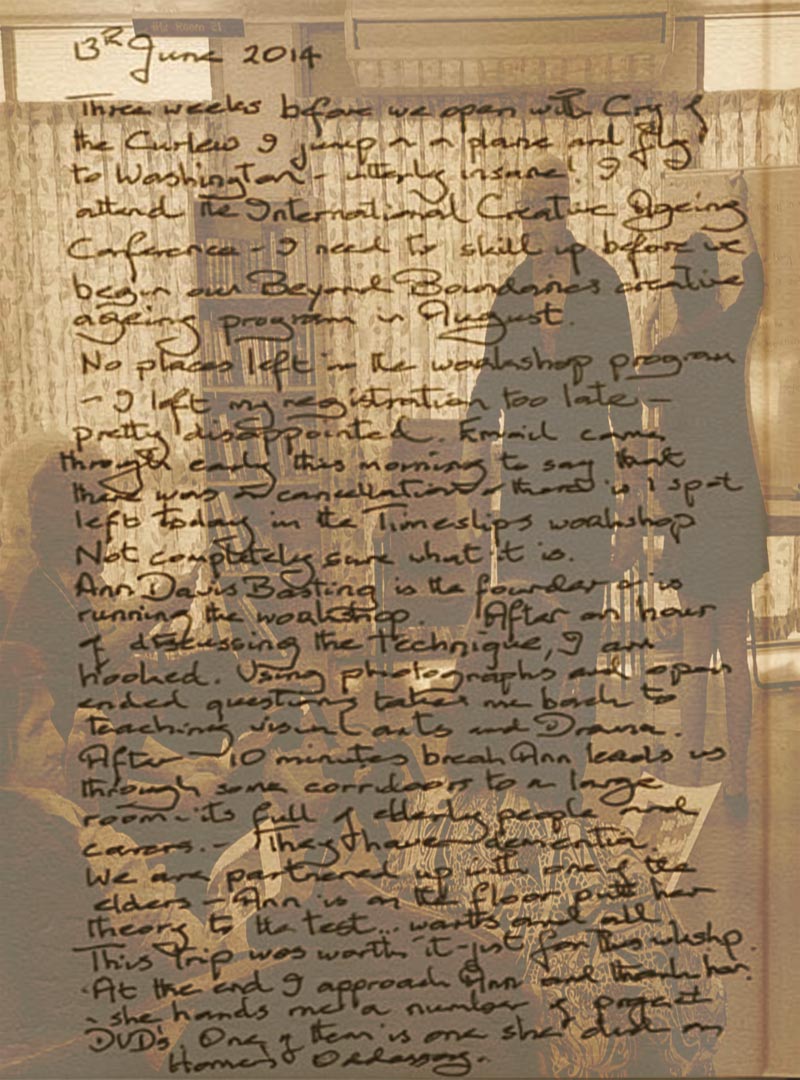 13th June 2014
Three weeks before we open with Cry of
the Curlew I jump on a plane and fly
to Washington - utterly insane! I
attend the International Creative Ageing
Conference - I need to skill up before we
begin our Beyond Boundaries creative
ageing program in August.
No places left in the workshop program
- I left my registration too late -
pretty disappointed. Email came
through early this morning to say that
there was a cancellation & there is 1 spot
left today in the Timeslips workshop
Not completely sure what it is.
Ann Davis Basting is the founder & is
running the workshop. After an hour
of discussing the technique, I am
hooked. Using photographs and open
ended questions takes me back to
teaching visual arts and Drama.
After 10 minutes break Ann leads us
through some corridoors to a large
room - its full of elderly people and
carers. - They have dementia.
We are partnered up with one of the
elders - Ann is on the floor putt her
theory to the test... warts and all.
This trip was worth it - just for this wkshp.
At the end I approach Ann and thank her.
- she hands me a number of project
DVD's. One of them is one she did on
Homer's Odessey.